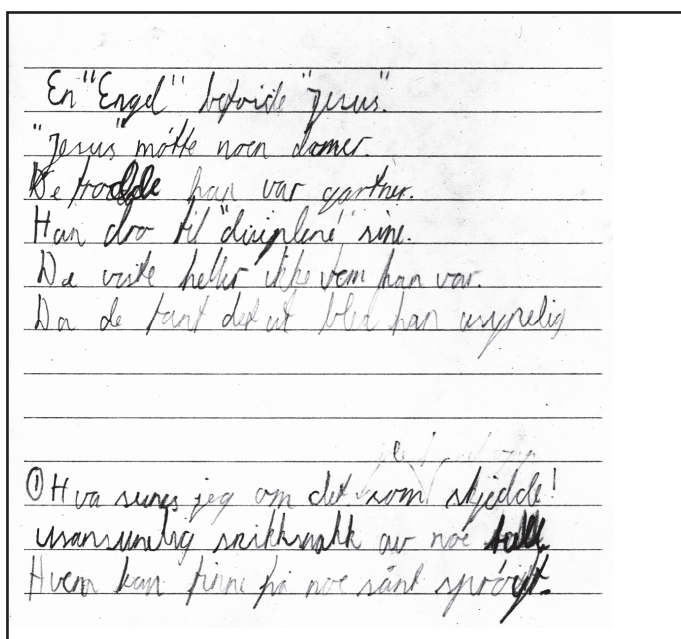 En "Engel" befride "Jesus".
"Jesus" møtte noen damer.
De trodde han var gartner.
Han dro til "disiplene" sine.
De viste heller ikke vem han var.
Da de fant det ut blei han usynelig
① Hva synes jeg om det som skjedde!
usansynelig snikksnakk av noe tull
Hvem kan finne på noe sånt sprøyt.